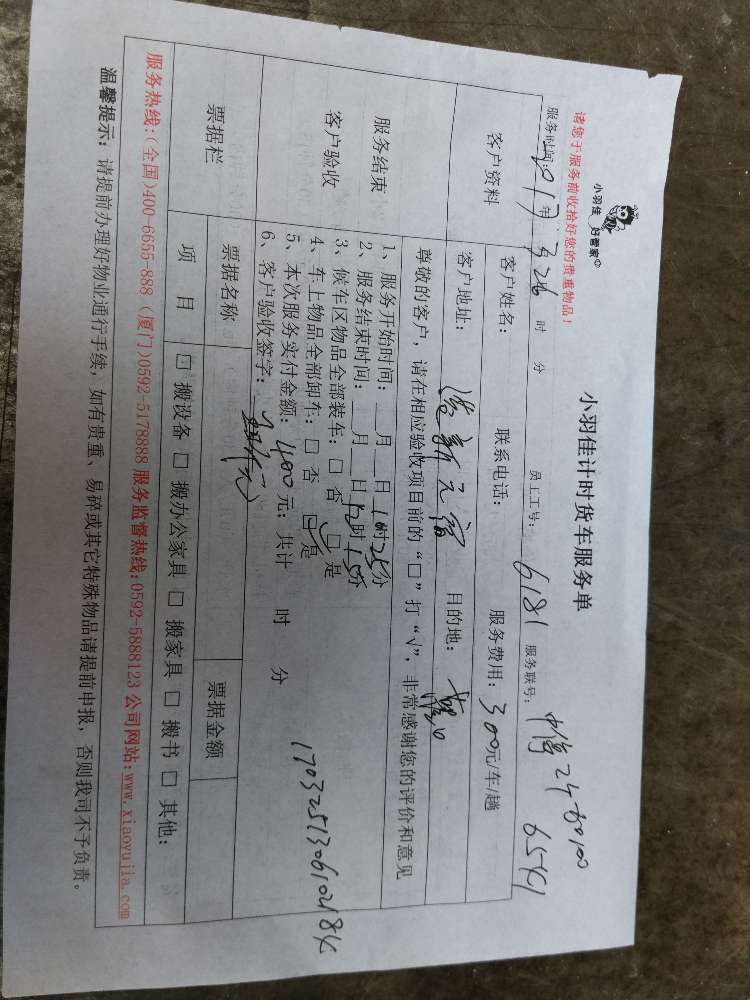 小羽佳 好管家
小羽佳计时货车服务单
请您于服务前收拾好您的贵重物品！
服务时间：2017年 3 26 时 分 员工工号：6181 服务联号：
客户资料
客户姓名： 联系电话： 服务费用：300元/车/趟
客户地址： 目的地：
尊敬的客户，请在相应验收项目前的“□”打“√”，非常感谢您的评价和意见
服务结束
客户验收
1、服务开始时间：__月__日 时25分
2、服务结束时间：__月__日12时15分
3、候车区物品全部装车：□ 否 □ 是
4、车上物品全部卸车：□ 否 □ 是
5、本次服务实付金额：400元；共计 时 分
6、客户验收签字：
票据栏
票据名称 票据金额
项 目 □ 搬设备 □ 搬办公家具 □ 搬家具 □ 搬书 □ 其他：
服务热线：(全国)400-6655-888 (厦门)0592-5178888 服务监督热线：0592-5888123 公司网站：www.xiaoyujia.com
温馨提示：请提前办理好物业通行手续，如有贵重、易碎或其它特殊物品请提前申报，否则我司不予负责。